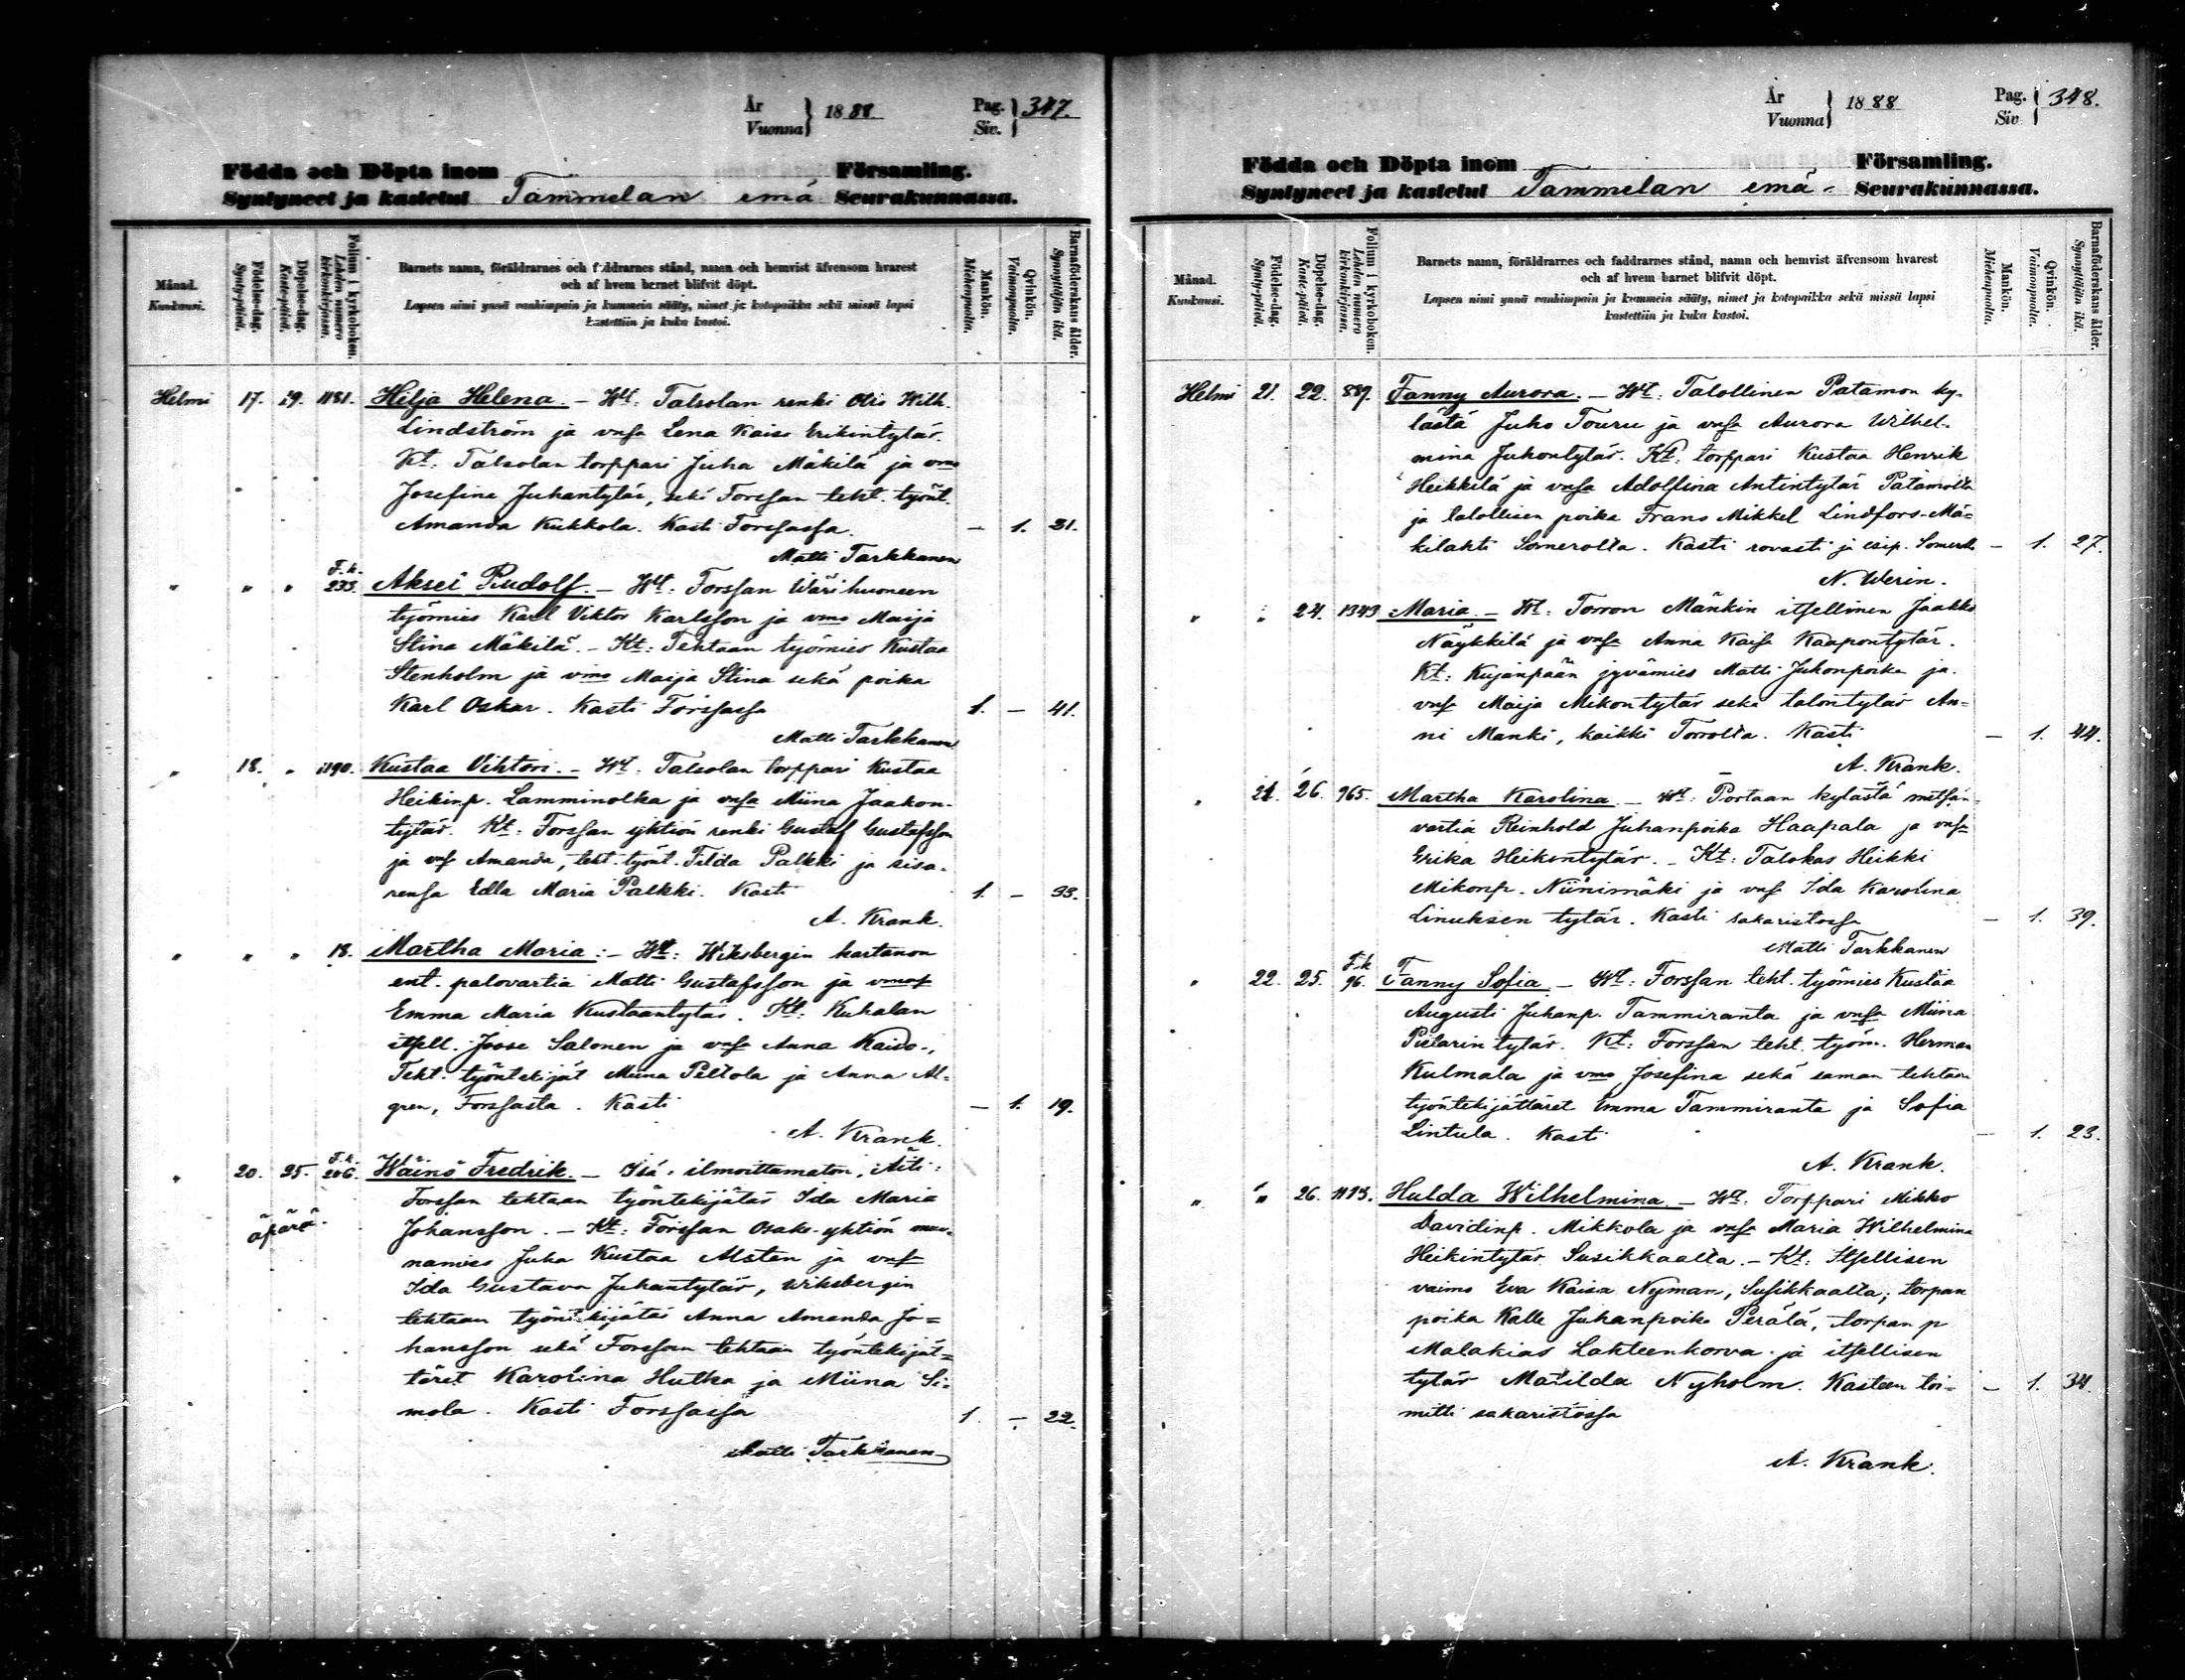 År
Vuonna } 1888
Pag.
Siv. } 347.
Födda och Döpta inom Församling.
Syntyneet ja kastetut Tammelan emä Seurakunnassa.
Månad.
Kuukausi.
Födelse-dag.
Synty-päivä.
Döpelse-dag.
Kaste-päivä.
Folium i kyrkoboken.
Lehden numero kirkonkirjassa.
Barnets namn, föräldrarnes och faddrarnes stånd, namn och hemvist äfvensom hvarest
och af hvem barnet blifvit döpt.
Lapsen nimi ynnä vanhimpain ja kummein sääty, nimet ja kotopaikka sekä missä lapsi
kastettiin ja kuka kastoi.
Mankön.
Miehenpuolta.
Qvinkön.
Vaimonpuolta.
Barnaföderskans ålder.
Synnyttäjän ikä.
Helmi 17. 19. 1181. Hilja Helena. – Wt: Talsolan renki Otto Wilh.
Lindström ja vnsa Lena Kaisa Erikintytär.
Kt: Talsolan torppari Juha Mäkilä ja vmo
Josefina Juhantytär, sekä Forssan teht. työnt.
Amanda Kukkola. Kasti Forssassa. – 1. 31.
Matti Tarkkanen
" " " F.k. 233. Aksel Rudolf. – Wt: Forssan Wärihuoneen
työmies Karl Viktor Karlsson ja vmo Maija
Stina Mäkilä. – Kt: Tehtaan työmies Kustaa
Stenholm ja vmo Maija Stina sekä poika
Karl Oskar. Kasti Forssassa 1. – 41.
Matti Tarkkanen
" 18. " 1190. Kustaa Vihtori. – Wt: Talsolan torppari Kustaa
Heikinp. Lamminolka ja vnsa Miina Jaakon-
tytär. Kt: Forssan yhtiön renki Gustaf Gustafsson
ja vns Amanda, teht. työnt. Tilda Palkki ja sisa-
rensa Edla Maria Palkki. Kasti 1. – 33.
A. Krank.
" " " 18. Martha Maria: – Wt: Wiksbergin kartanon
ent. palovartia Matti Gustafsson ja vmos
Emma Maria Kustaantytär. Kt: Kuhalan
itsell. Josse Salonen ja vnsa Anna Kaiso,
Teht. työntekijät Miina Peltola ja Anna Al-
gren, Forssasta. Kasti – 1. 19.
A. Krank.
" 20. 25. F.k. 206. Wäinö Fredrik. – Isä: ilmoittamaton. Äiti:
Forssan tehtaan työntekijätär Ida Maria
äpärä. Johansson. – Kt: Forssan Osake-yhtiön muu-
ramies Juha Kustaa Alsten ja vns
Ida Gustava Juhantytär, Wiksbergin
tehtaan työntekijätär Anna Amanda Jo=
hansson sekä Forssan tehtaan työntekijät=
täret Karolina Hutka ja Miina Si-
mola. Kasti Forssassa 1. – 22.
Matti Tarkkanen
År
Vuonna } 1888
Pag.
Siv } 348.
Födda och Döpta inom Församling.
Syntyneet ja kastetut Tammelan emä- Seurakunnassa.
Månad.
Kuukausi.
Födelse-dag.
Synty-päivä.
Döpelse-dag.
Kaste-päivä.
Folium i kyrkoboken.
Lehden numero kirkonkirjassa.
Barnets namn, föräldrarnes och faddrarnes stånd, namn och hemvist äfvensom hvarest
och af hvem barnet blifvit döpt.
Lapsen nimi ynnä vanhimpain ja kummein sääty, nimet ja kotopaikka sekä missä lapsi
kastettiin ja kuka kastoi.
Mankön.
Miehenpuolta.
Qvinkön.
Vaimonpuolta.
Barnaföderskans ålder.
Synnyttäjän ikä.
Helmi 21. 22. 889. Fanny Aurora. – Wt: Talollinen Patamon ky-
lästä Juho Touru ja vnsa Aurora Wilhel-
mina Juhontytär. Kt: torppari Kustaa Henrik
Heikkilä ja vnsa Adolfina Antintytär Patamolta
ja talollisen poika Frans Mikkel Lindfors-Mä=
kilahti Somerolta. Kasti rovasti ja – 1. 27.
N. Werin.
" " 24. 1343 Maria. – Wt: Torron Mänkin itsellinen Jaakko
Näykkilä ja vnsa Anna Kaisa Kaapontytär.
Kt: Kujanpään jyvämies Matti Juhonpoika ja
vnsa Maija Mikontytär sekä talontytär An=
ni Manki, kaikki Torrolta. Kasti – 1. 44.
A. Krank.
" 21. 26. 965. Martha Karolina – Wt: Portaan kylästä metsän-
vartia Reinhold Juhanpoika Haapala ja vnsa
Erika Heikintytär. – Kt: Talokas Heikki
Mikonp. Niinimäki ja vnsa Ida Karolina
Linuksen tytär. Kasti sakaristossa – 1. 39.
Matti Tarkkanen
" 22. 25. F.k. 96. Fanny Sofia. – Wt: Forssan teht. työmies Kustaa
Augusti Juhanp. Tammiranta ja vnsa Miina
Pietarintytär. Kt: Forssan teht. työm. Herman
Kulmala ja vmo Josefina sekä saman tehtaan
työntekijättäret Emma Tammiranta ja Sofia
Lintula. Kasti – 1. 23.
A. Krank.
" " 26. 1173. Hulda Wilhelmina. – Wt: Torppari Mikko
Davidinp. Mikkola ja vnsa Maria Wilhelmina
Heikintytär Susikkaalta. – Kt: Itsellisen
vaimo Eva Kaisa Nyman, Susikkaalta; torpan
poika Kalle Juhanpoika Perälä, torpan p
Malakias Lahteenkorva ja itsellisen
tytär Matilda Nyholm. Kasteen toi= – 1. 34.
mitti sakaristossa
A. Krank.